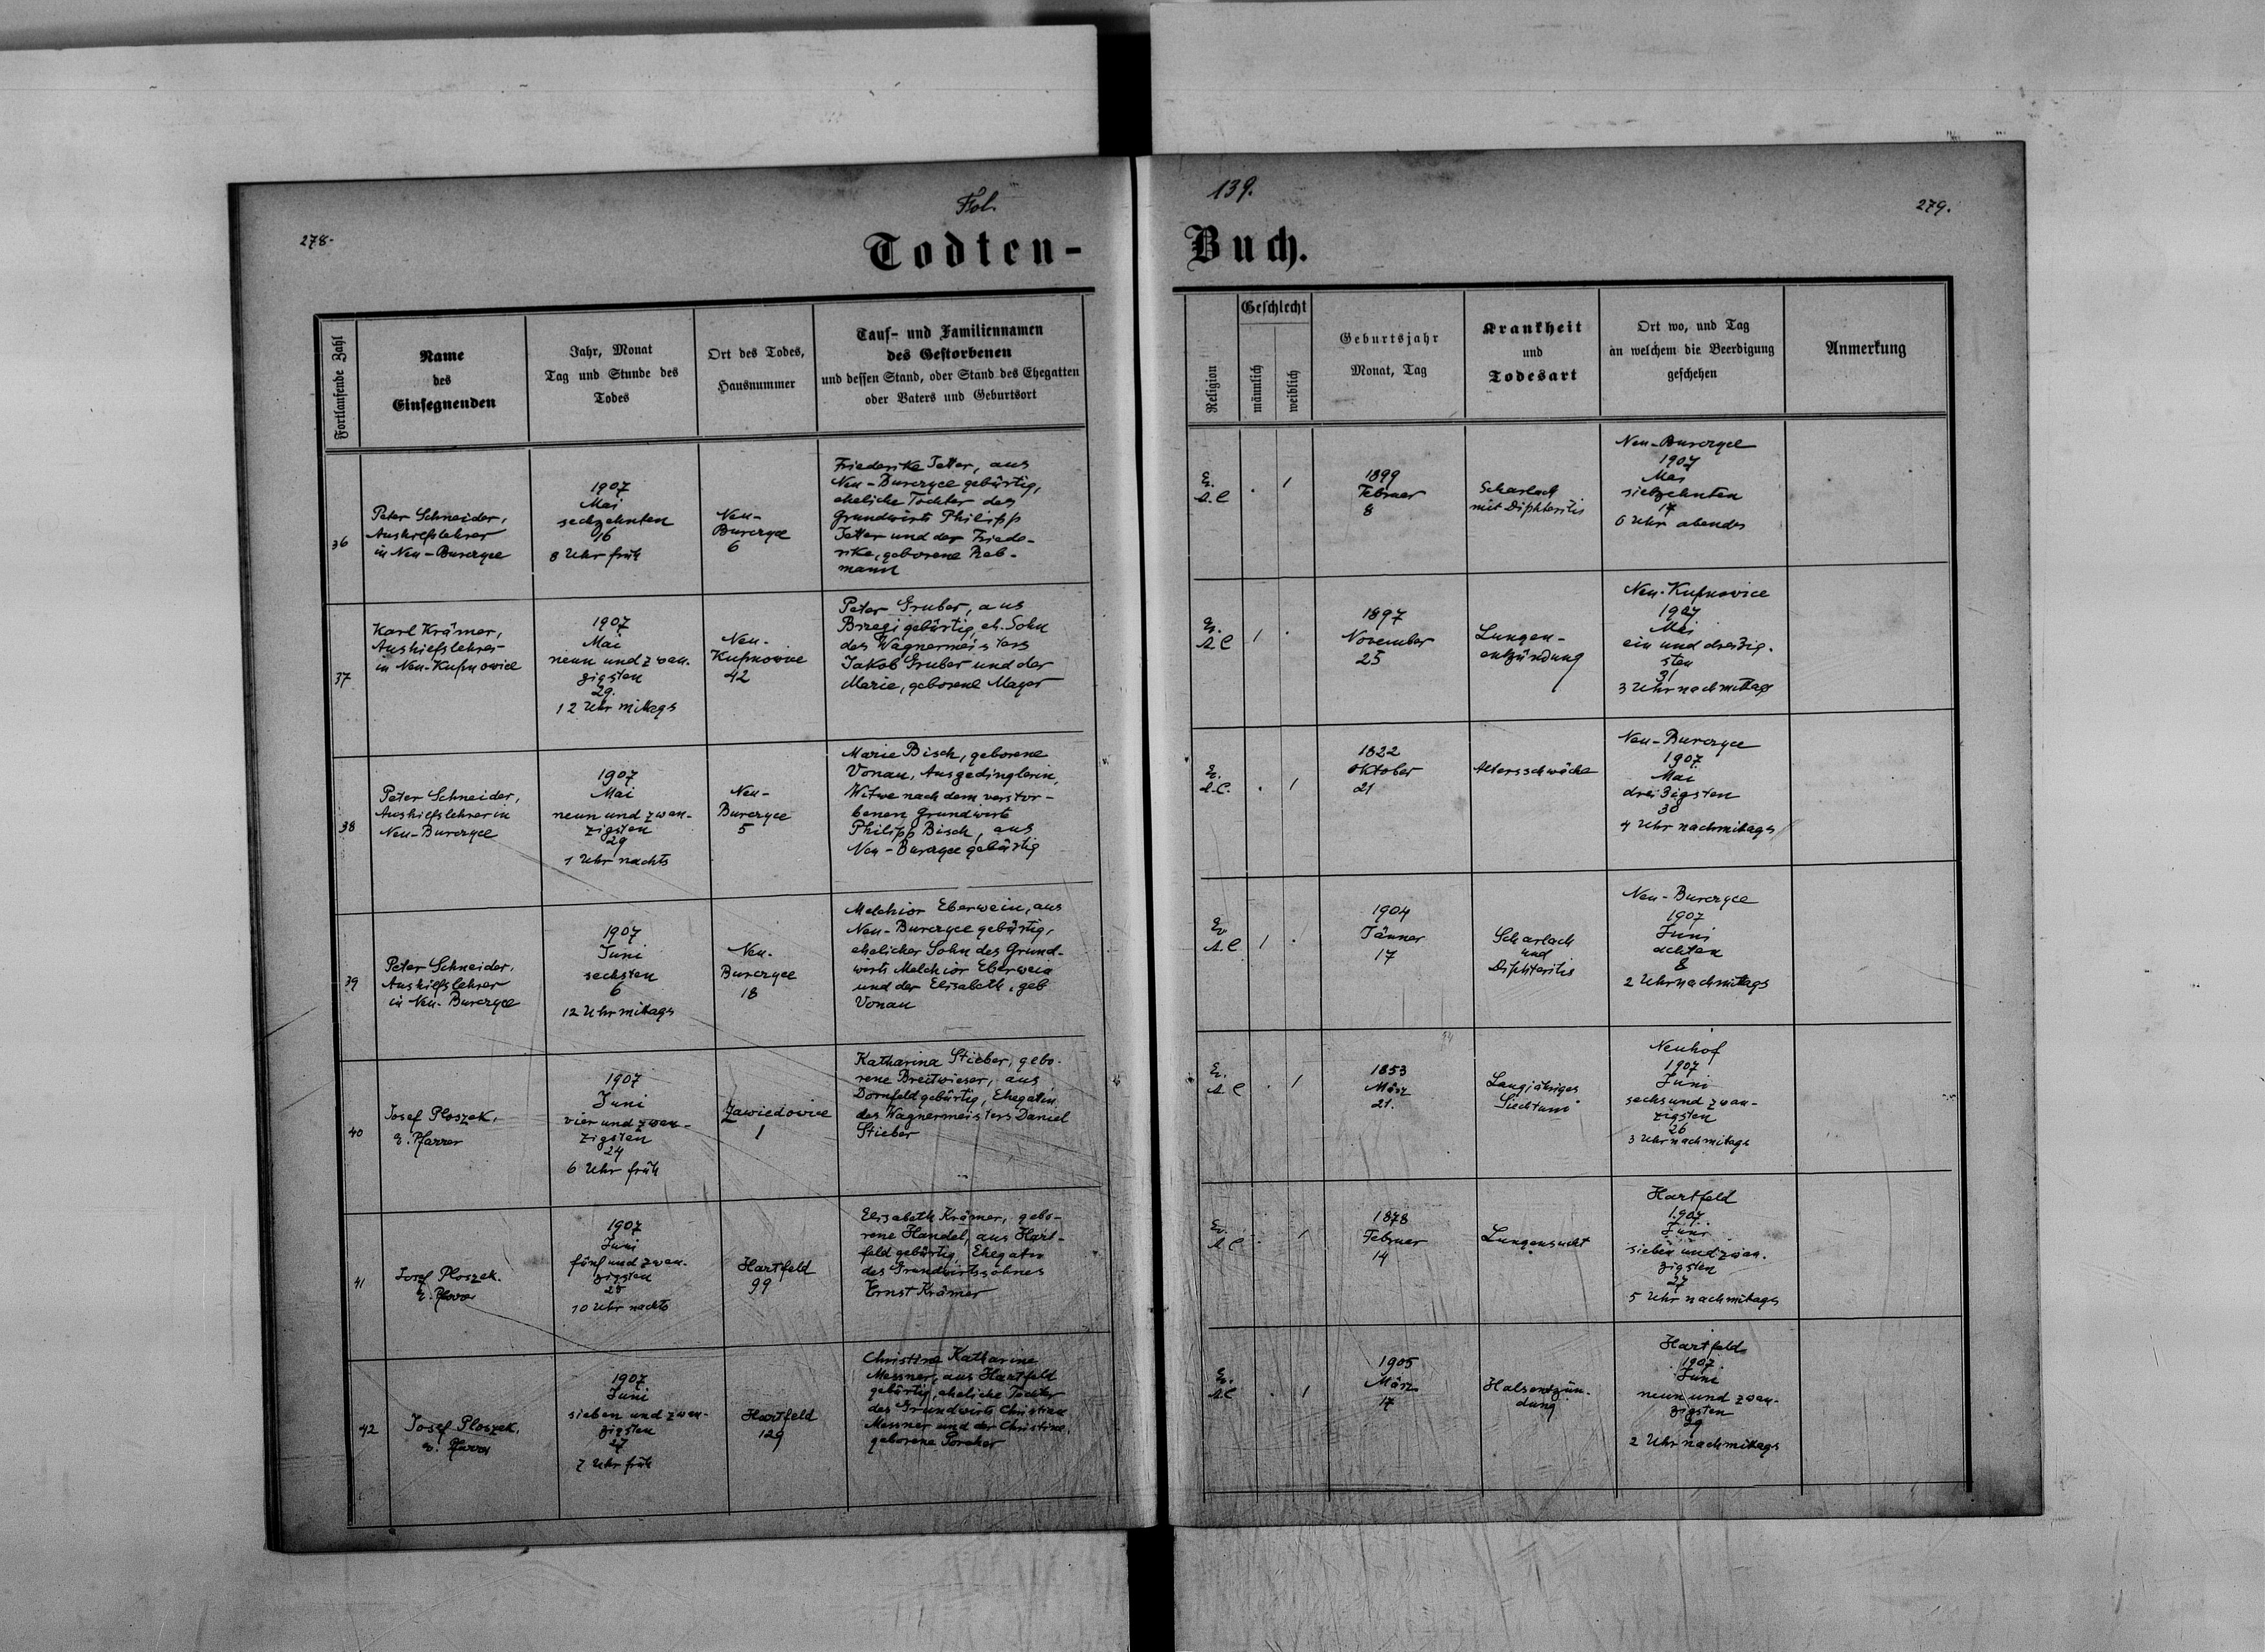 278.
Fol.
139.
279.
Todten-
Buch.
Fortlaufende Zahl
Name
des
Einsegnenden
Jahr, Monat
Tag und Stunde des
Todes
Ort des Todes,
Hausnummer
Tauf- und Familiennamen
des Gestorbenen
und dessen Stand, oder Stand des Ehegatten
oder Vaters und Geburtsort
Religion
Geschlecht
männlich
weiblich
Geburtsjahr
Monat, Tag
Krankheit
und
Todesart
Ort wo, und Tag
an welchem die Beerdigung
geschehen
Anmerkung
36
Peter Schneider,
Aushilfslehrer
in Neu-Burczyce
1907
Mai
sechzehnten
16
8 Uhr früh
Neu-
Burczyce
6
Friederike Tetter, aus
Neu-Burczyce gebürtig,
eheliche Tochter des
Grundwirts Philipp
Tetter und der Friede-
rike, geborene Reb-
mann
Ev.
A.C
. 1
1899
Februar
8
Scharlach
mit Diphteritis
Neu-Burczyce
1907
Mai
siebzehnten
17
6 Uhr abends
37
Karl Krämer,
Aushilfslehrer
in Neu-Kupnowice
1907
Mai
neun und zwan-
zigsten
29.
12 Uhr mittags
Neu-
Kupnowice
42
Peter Gruber, aus
Brzegi gebürtig, eh. Sohn
des Wagnermeisters
Jakob Gruber und der
Marie, geborene Mayer
Ev.
A.C
1 .
1897
November
25
Lungen-
entzündung
Neu-Kupnowice
1907
Mai
ein und dreißig-
sten
31
3 Uhr nachmittags
38
Peter Schneider,
Aushilfslehrer in
Neu-Burczyce
1907
Mai
neun und zwan-
zigsten
29
1 Uhr nachts
Neu-
Burczyce
5
Marie Bisch, geborene
Vonau, Ausgedinglerin,
Witwe nach dem verstor-
benen Grundwirte
Philipp Bisch, aus
Neu-Burczyce gebürtig
Ev.
A.C.
. 1
1822
Oktober
21
Altersschwäche
Neu-Burczyce
1907
Mai
dreißigsten
30
4 Uhr nachmittags
39
Peter Schneider,
Aushilfslehrer
in Neu-Burczyce
1907
Juni
sechsten
6
12 Uhr mittags
Neu-
Burczyce
18
Melchior Eberwein, aus
Neu-Burczyce gebürtig,
ehelicher Sohn des Grund-
wirts Melchior Eberwein
und der Elisabeth, geb
Vonau
Ev
A.C
1 .
1904
Jänner
17
Scharlach
und
Diphteritis
Neu-Burczyce
1907
Juni
achten
8
2 Uhr nachmittags
40
Josef Ploszek,
ev. Pfarrer
1907
Juni
vier und zwan-
zigsten
24
6 Uhr früh
Zawiedowice
1
Katharina Stieber, gebo-
rene Breitwieser, aus
Dornfeld gebürtig, Ehegatin
des Wagnermeisters Daniel
Stieber
Ev.
A.C
. 1
1853
März
21.
Langjähriges
Siechtum
Neuhof
1907
Juni
sechs und zwan-
zigsten
26
3 Uhr nachmittags
41
Josef Ploszek.
ev. Pfarrer
1907
Juni
fünf und zwan-
zigsten
25
10 Uhr nachts
Hartfeld
99
Elisabeth Krämer, gebo-
rene Handel, aus Hart-
feld gebürtig, Ehegatin
des Grundwirtssohnes
Ernst Krämer
Ev.
A.C
. 1
1878
Februar
14
Lungensucht
Hartfeld
1907.
Juni
sieben und zwan-
zigsten
27
5 Uhr nachmittags
42
Josef Ploszek.
ev. Pfarrer
1907
Juni
sieben und zwan-
zigsten
27
7 Uhr früh
Hartfeld
129
Christine Katharine
Messner, aus Hartfeld
gebürtig, eheliche Tochter
des Grundwirts Christian
Messner und der Christine,
geborene
Ev.
A.C
. 1
1905
März
17
Halsentzün-
dung
Hartfeld
1907.
Juni
neun und zwan-
zigsten
29
2 Uhr nachmittags